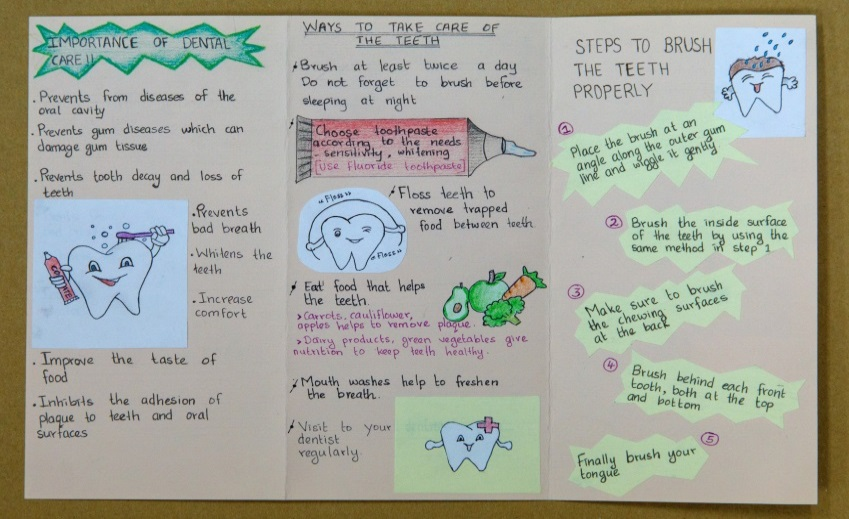 IMPORTANCE OF DENTAL
CARE !!
. Prevents from diseases of the
oral cavity
. Prevents gum diseases which can
damage gum tissue
. Prevents tooth decay and loss of
teeth
. Prevents
bad breath
. Whitens the
teeth
. Increase
comfort
. Improve the taste of
food
. Inhibits the adhesion of
plaque to teeth and oral
surfaces
WAYS TO TAKE CARE OF
THE TEETH
Brush at least twice a day
Do not forget to brush before
sleeping at night
Choose toothpaste
according to the needs
- sensitivity, whitening
[Use fluoride toothpaste]
"Floss"
"Floss"
Floss teeth to
remove trapped
food between teeth
Eat food that helps
the teeth.
> Carrots, cauliflower,
apples helps to remove plaque.
> Dairy products, green vegetables give
nutrition to keep teeth healthy.
Mouth washes help to freshen
the breath.
Visit to your
dentist
regularly.
STEPS TO BRUSH
THE TEETH
PROPERLY
1
Place the brush at an
angle along the outer gum
line and wiggle it gently
2
Brush the inside surface
of the teeth by using the
same method in step 1
3
Make sure to brush
the chewing surfaces
at the back
4
Brush behind each front
tooth, both at the top
and bottom
5
Finally brush your
tongue